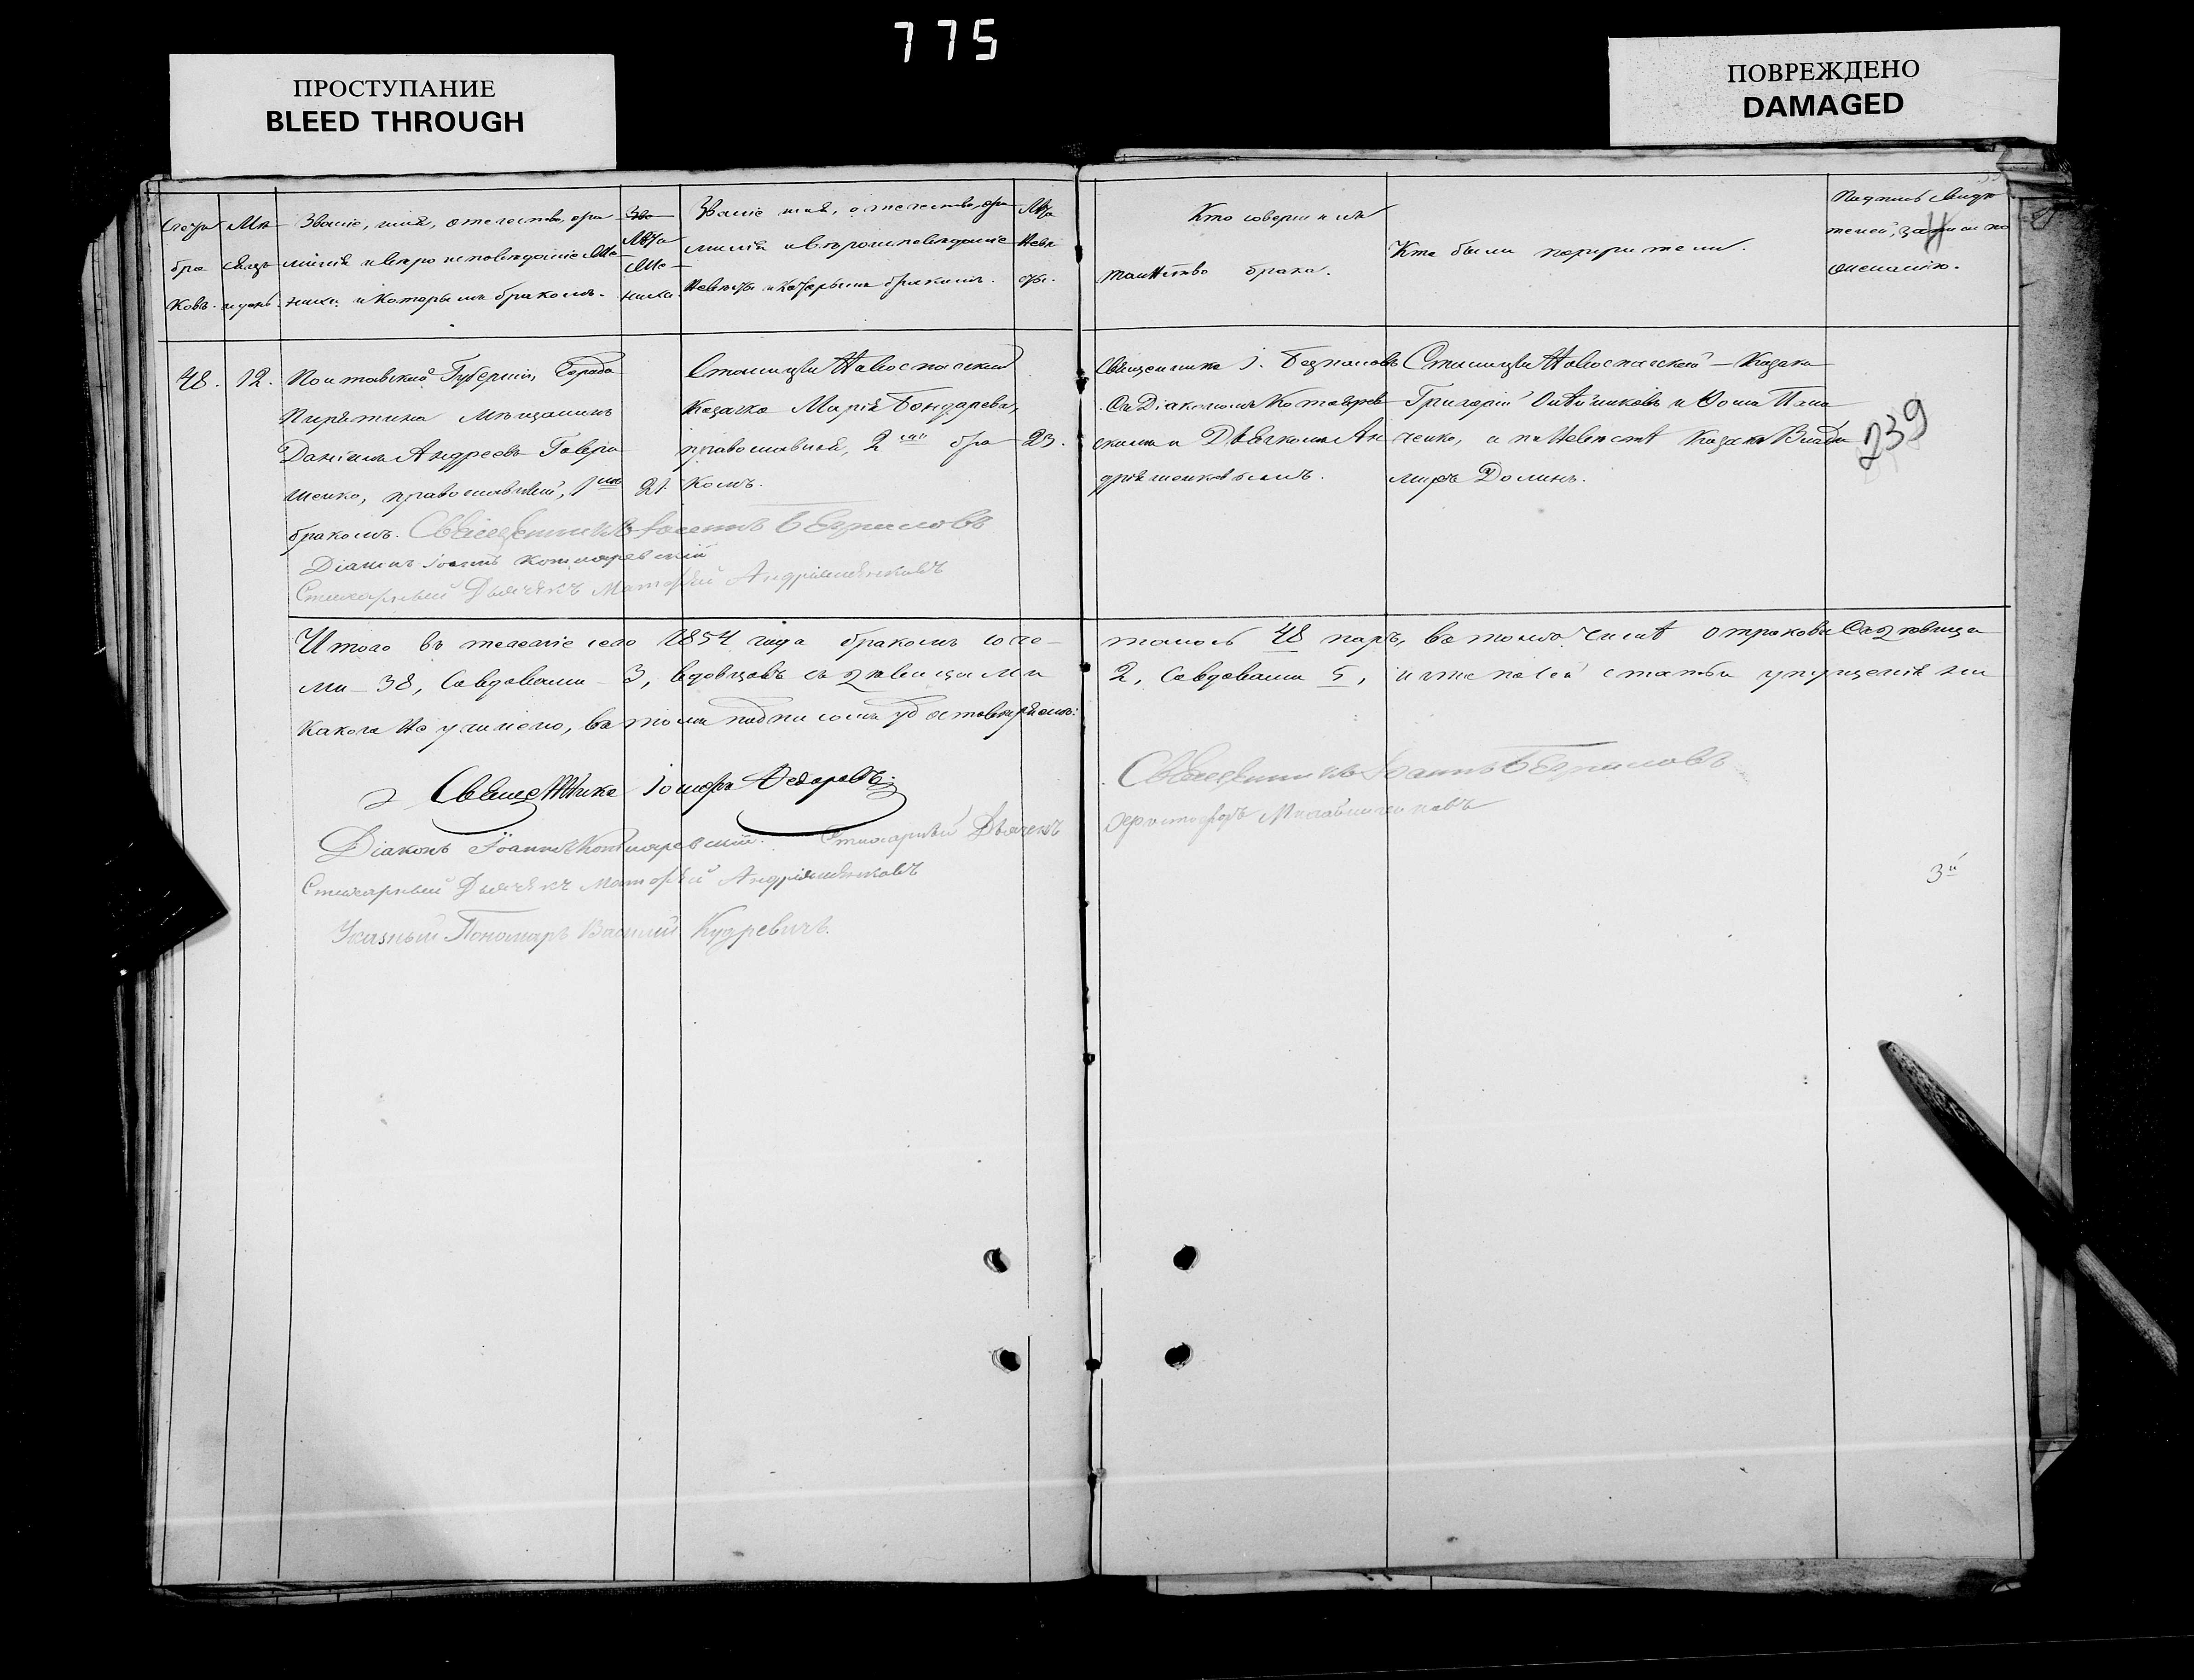 775
ПРОСТУПАНИЕ
BLEED THROUGH
ПОВРЕЖДЕНО
DAMAGED
Счетъ
бра
ковъ.
Мѣ
сяцъ
и день.
Званіе, имя, отечество, фа
милія и вѣроисповѣданіе Же
ниха и которымъ бракомъ.
Лѣта
Же
ниха.
Званіе имя, отечество, фа
милія и вѣроисповѣданіе
Невѣсты и которымъ бракомъ.
Лѣта
Невѣ
сты.
Кто совершилъ
таинство брака.
Кто были поручители.
Подпись свидѣ
телей, записи по
желанію.
48.
12.
Полтавской Губерніи, Города
Пирятина Мѣщанинъ
Даніилъ Андреевъ Гавры
шенко, православный, 1мъ
бракомъ.
21.
Станицы Новоспаской
Казачка Марія Бондарева,
православная, 2мъ бра
комъ.
23.
Священникъ І. Безпаловъ
Съ Діакономъ Котляров
скимъ и Дьячкомъ Ан
дріяшенковымъ.
Станицы Новоспасской Казаки
Григорій и Фома Пана
ченко, а по Невѣстѣ Казакъ Влади
миръ Долинъ.
239
Священникъ Іоаннъ Безпаловъ
Діаконъ Іоаннъ Котляревскій
Стихарный Дьячекъ Матѳей Андріяшенковъ
Итого въ теченіе сего 1854 года бракомъ соче
талось 48 паръ, въ томъ числѣ отроковъ съ дѣвица
ми 38, со вдовами 3, вдовцовъ съ дѣвицами
2, со вдовами 5, и что по сей статьи упущенія ни
какого не учинено, въ томъ подписомъ удостовѣряемъ:
Священникъ Іосифъ Ѳедоровъ
Священникъ Іоаннъ Безпаловъ
Діаконъ Іоаннъ Котляревскій. Стихарный Дьячекъ
Стихарный Дьячекъ Матѳей Андріяшенковъ
Указный Пономарь Василій Кудревичъ.
3й